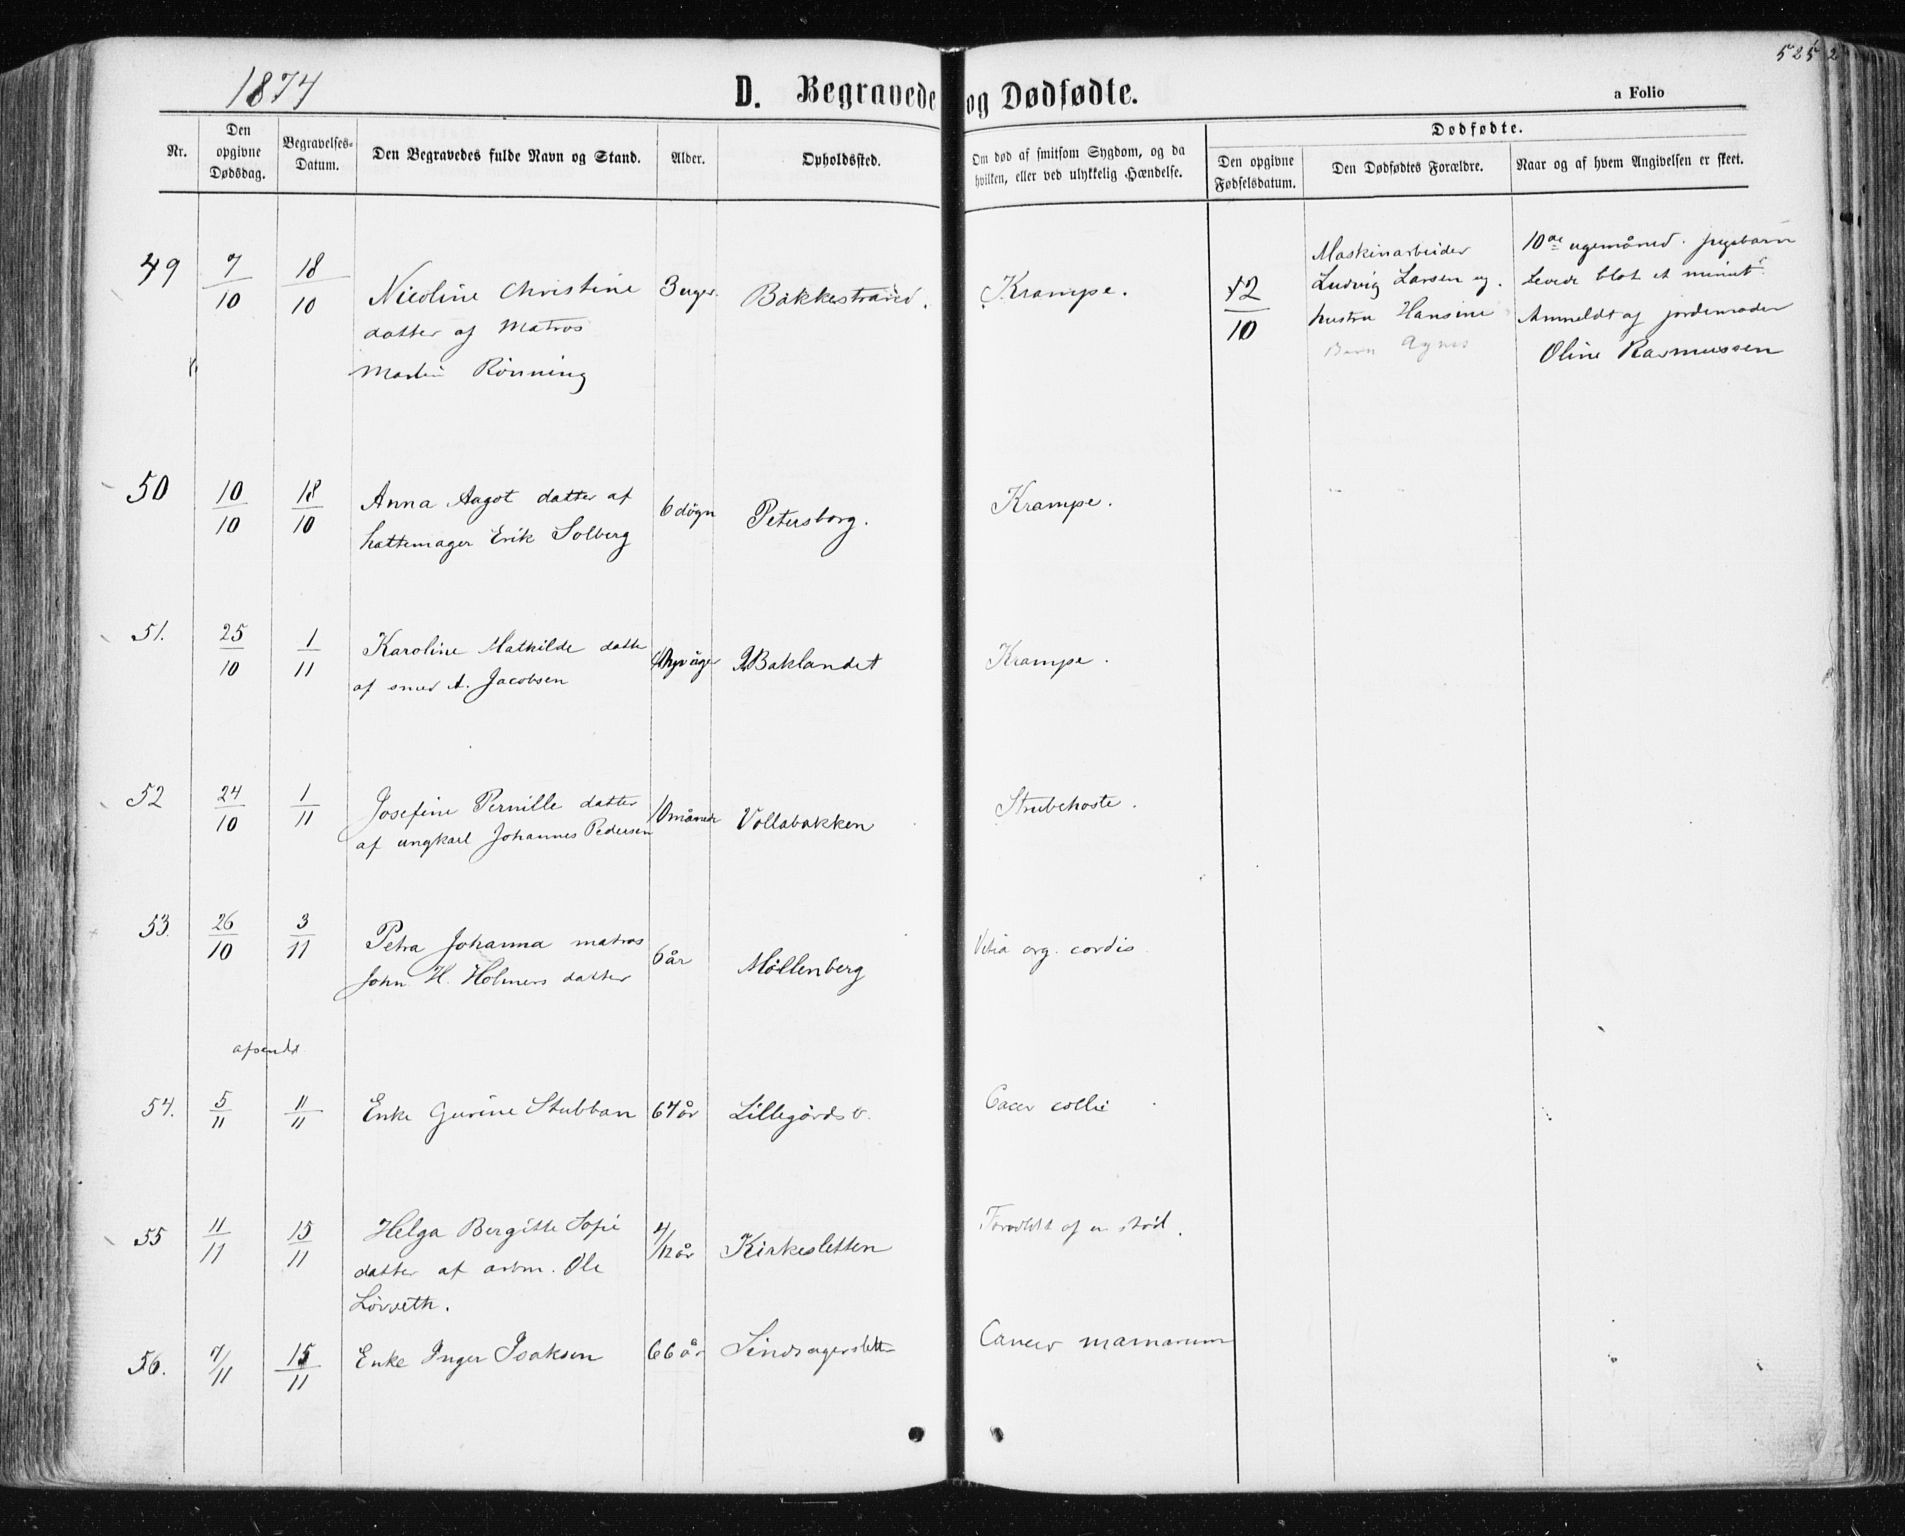 1874
D. Begravede og Dødfødte.
a Folio
525
Nr.
Den opgivne Dødsdag.
Begravelses-Datum.
Den Begravedes fulde Navn og Stand.
Alder.
Opholdssted.
Om død af smitsom Sygdom, og da hvilken, eller ved ulykkelig Hændelse.
Dødfødte.
Den opgivne Fødselsdatum.
Den Dødfødtes Forældre.
Naar og af hvem Angivelsen er skeet.
49 7/10 18/10 Nicoline Christine 3 uger. Bakkestrand. Krampe.
datter af Matros
Martin Rönning
12/10
Maskinarbeider
Ludvig Larsen og
hustru Hansine
Barn Agnes
10de ugemåned. pigebarn
Levede blot et minut
Anmeldt af jordemoder
Oline Rasmussen
50 10/10 18/10 Anna Aagot datter af 6 dögn Petersborg. Krampe.
hattemager Erik Solberg
51. 25/10 1/11 Karoline Mathilde datte Baklandet Krampe.
af smed A. Jacobsen
52 24/10 1/11 Josefine Pernille datter 10 måneder Vollabakken Strubehoste.
af ungkarl Johannes Pedersen
53. 26/10 3/11 Petra Johanna matros 6 år Möllenberg Vitia org. cordis
John H. Holmers datter
afsendt
54. 5/11 11/11 Enke Gurine Stubban 67 år Lillegårds v. Cacer collie
55 11/11 15/11 Helga Bergitte Sofie 4/12 år Kirkesletten Foraarsaget af en stöd.
datter af arbm. Ole
Lövseth.
56. 7/11 15/11 Enke Inger Isaksen 66 år Lindsagerslett Cancer mamarum